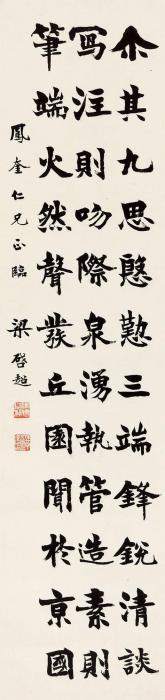 尒其九思慇懃三端鋒銳清談
寫注則吻際泉湧執管造素則
筆端火然聲發丘園聞於京國
鳳奎仁兄正臨 梁啓超